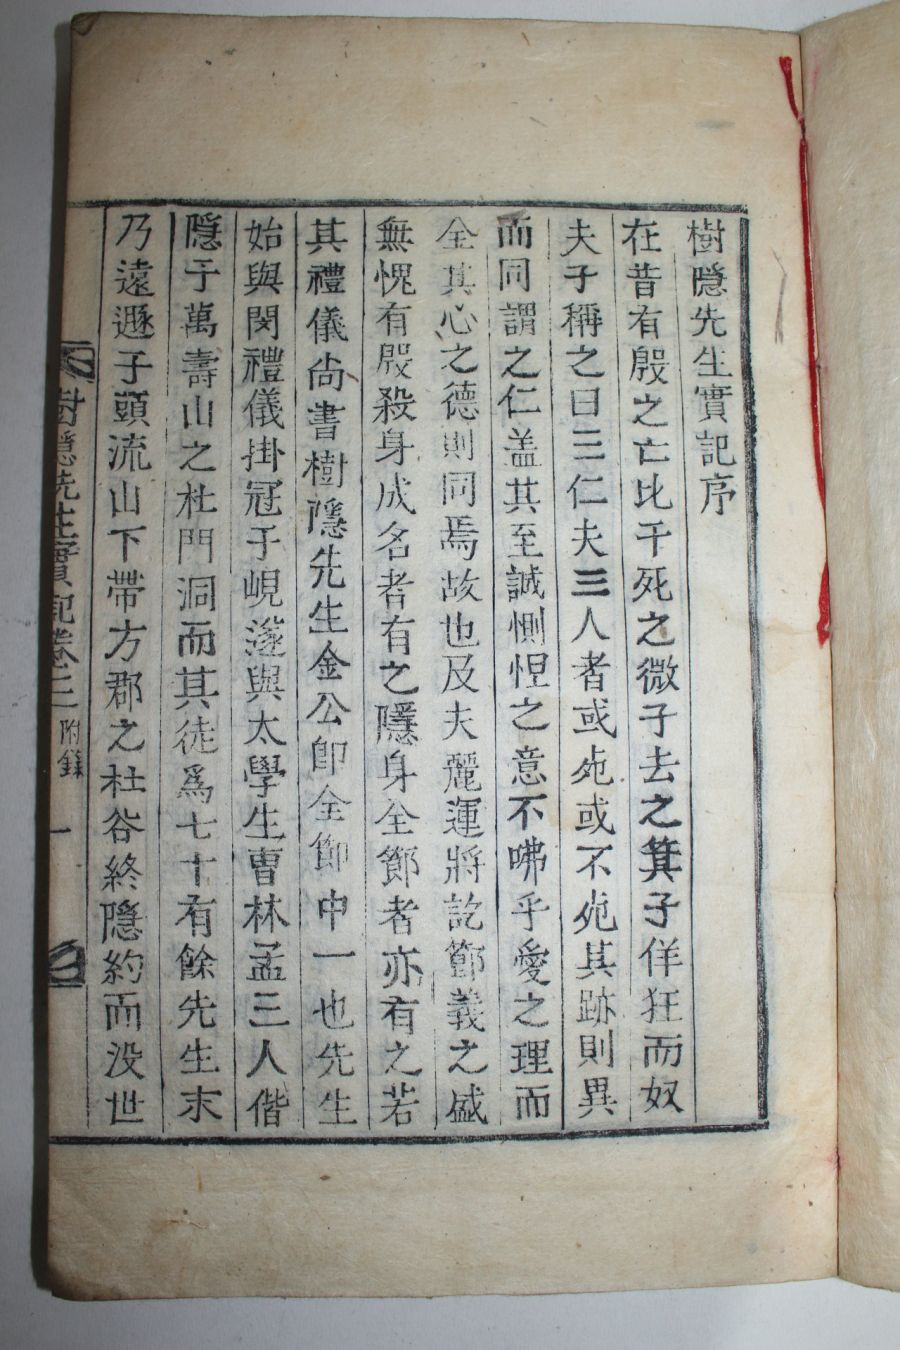 樹隱先生實記序
在昔有殷之亡比干死之微子去之箕子佯狂而奴
夫子稱之曰三仁夫三人者或死或不死其跡則異
而同謂之仁盖其至誠惻怛之意不咈乎愛之理而
全其心之德則同焉故也及夫麗運將訖節義之盛
無愧有殷殺身成名者有之隱身全節者亦有之若
其禮儀尙書樹隱先生金公卽全節中一也先生
始與閔禮儀掛冠于峴遂與太學生曺林孟三人偕
隱于萬壽山之杜門洞而其徒爲七十有餘先生末
乃遠遯于頭流山下帶方郡之杜谷終隱約而没世
樹隱先生實記卷之二 附錄 一